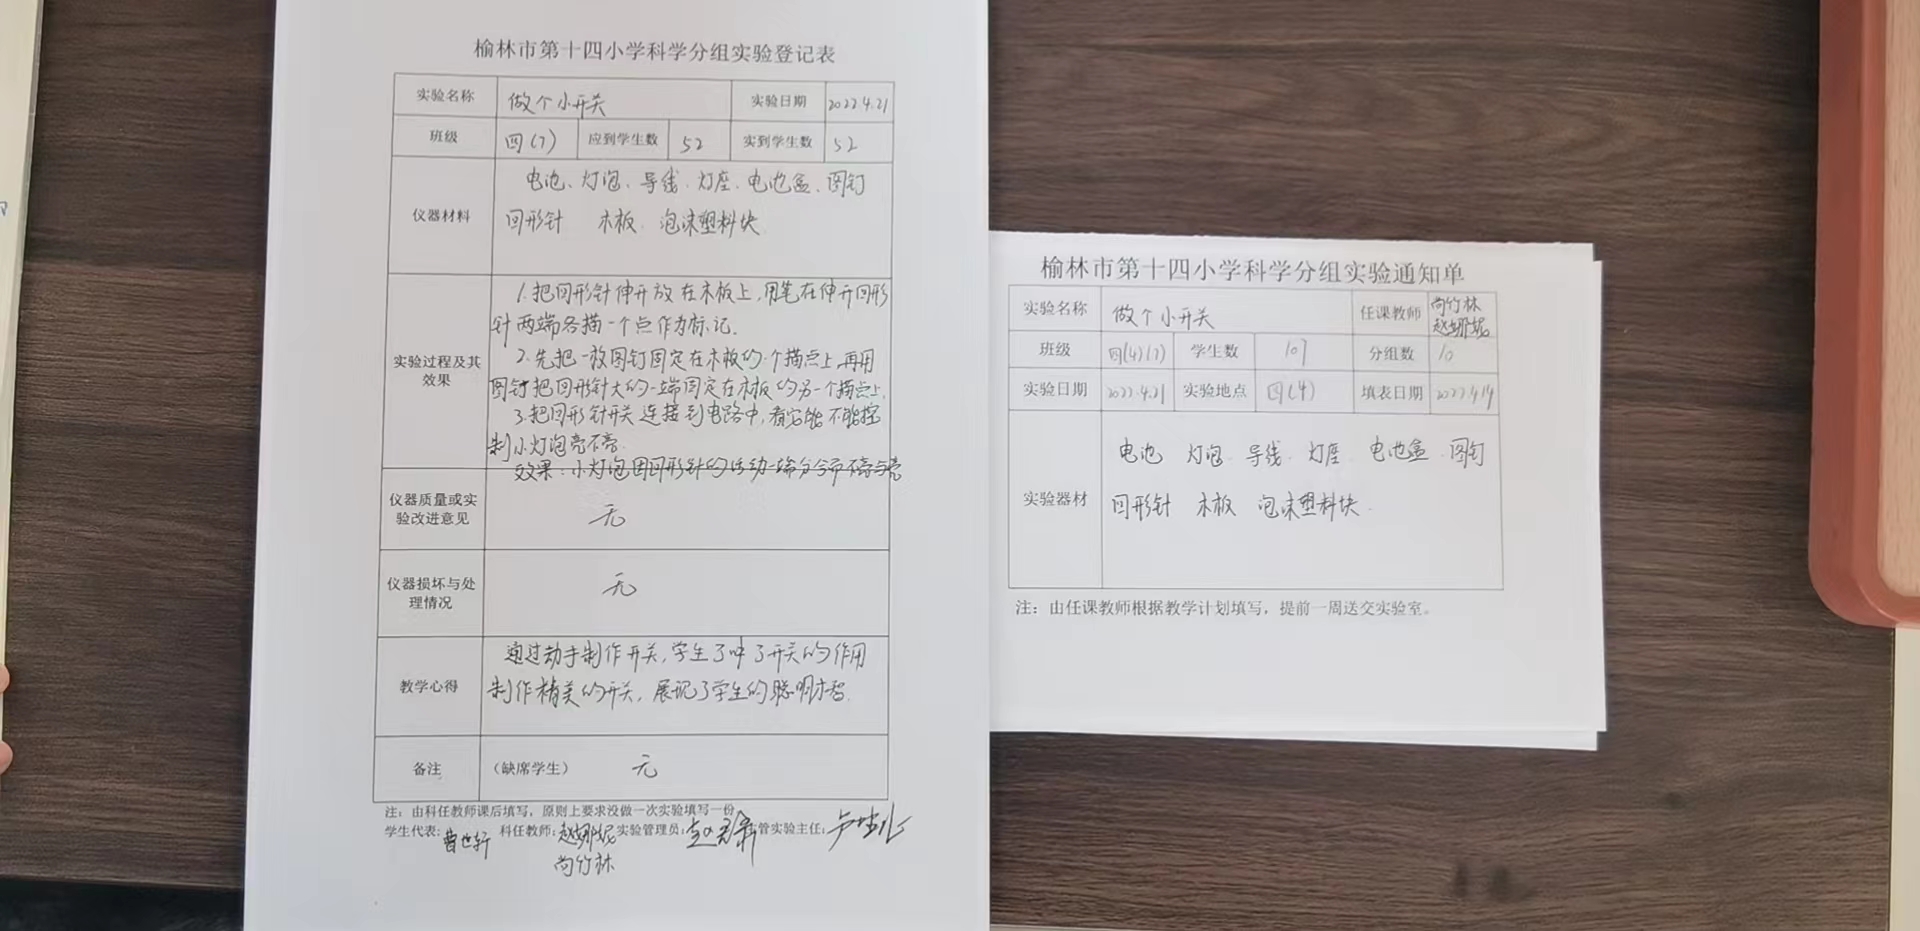 榆林市第十四小学科学分组实验登记表
实验名称 做个小开关 实验日期 2022.4.21
班级 四(7) 应到学生数 52 实到学生数 52
仪器材料
电池、灯泡、导线、灯座、电池盒、图钉
回形针 木板、泡沫塑料块
实验过程及其
效果
1.把回形针伸开放在木板上,用笔在伸开回形
针两端各描一个点作为标记.
2.先把一枚图钉固定在木板的一个描点上,再用
图钉把回形针大的一端固定在木板的另一个描点上.
3.把回形针开关连接到电路中,看它能不能控
制小灯泡亮不亮.
效果:小灯泡因回形针的活动一端分合而不亮与亮
仪器质量或实
验改进意见
无
仪器损坏与处
理情况
无
教学心得
通过动手制作开关,学生了解了开关的作用
制作精美的开关,展现了学生的聪明才智.
备注 (缺席学生) 无
注:由科任教师课后填写,原则上要求没做一次实验填写一份
学生代表: 曹也轩 科任教师: 赵娜妮 实验管理员: 管实验主任:
尚竹林
榆林市第十四小学科学分组实验通知单
实验名称 做个小开关 任课教师 尚竹林
赵娜妮
班级 四(4)(7) 学生数 107 分组数 10
实验日期 2022.4.21 实验地点 四(4) 填表日期 2022.4.14
实验器材
电池 灯泡 导线 灯座 电池盒 图钉
回形针 木板 泡沫塑料块.
注:由任课教师根据教学计划填写,提前一周送交实验室。